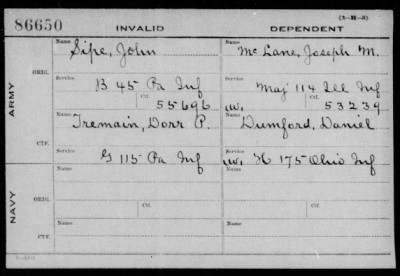 86650 INVALID DEPENDENT (3-H-8)
Name Name
Sipe, John Mc Lane, Joseph M.
ARMY
ORIG. Service Service
B 45 Pa Inf Maj 114 Ill Inf
Ctf. Ctf.
55696 W. 53239
Name Name
Tremain, Dorr P. Dumford, Daniel
CTF. Service Service
G 115 Pa Inf W. H 175 Ohio Inf
NAVY
Name Name
ORIG. Service Service
Ctf. Ctf.
Name Name
CTF. Service Service